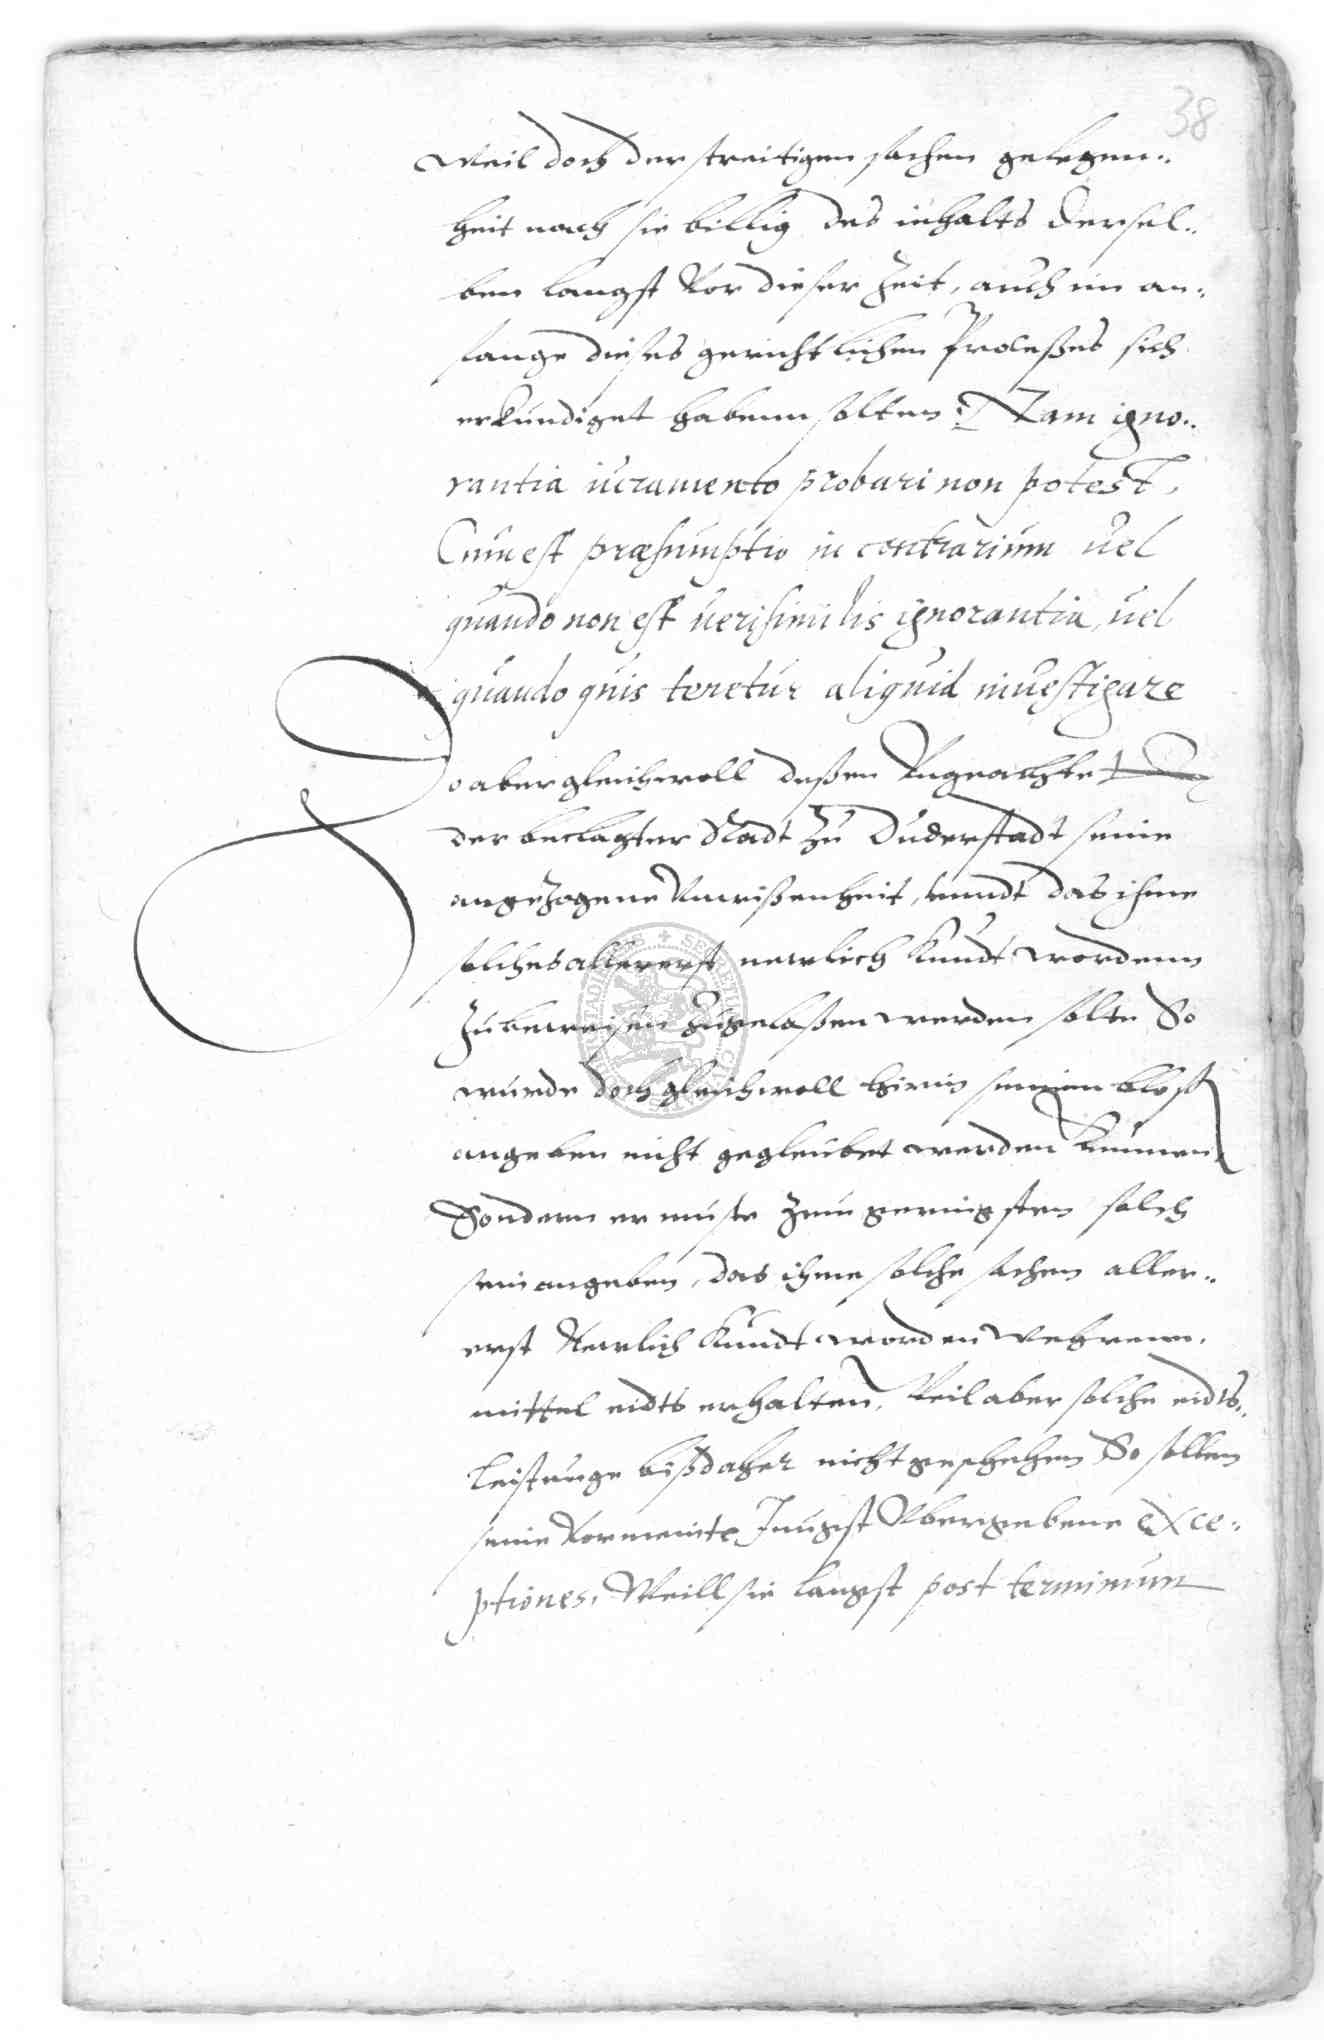 38
Weil doch der streitigen sachen gelegen„
heit nach sie billig des inhalts dersel„
ben langst Vor dieser Zeit, auch im an„
fange dieses gerichtlichen Processes sich
erkundiget habenn solten: Nam igno„
rantia iuramento probari non potest,
Cum est præsumptio in contrarium vel
quando non est verisimilis ignorantia, vel
quando quis tenetur aliquid investigare
Do aber gleichwoll deßen Vngeachtet
der beclagter Radt Zu Duderstadt seine
angezogene Vnwißenheit, vnndt das ihme
solches allererst newlich Kundt wordenn
Zubeweisen Zugelaßen werden solte So
wurde doch gleichwoll hirin seinem bloß
angeben nicht gegleubet werden Kunnen
Sondern er muste Zum geringsten solch
sein angeben, das ihme solche sachen aller„
erst Newlich Kundt worden wehrenn,
mittel eidts erhalten, Weil aber solche eidts„
leistunge bißdaher nicht geschehen So sollen
seine Vormeinte Jungst Vbergebene exce„
ptiones, Weill sie langst post terminum
SECRETUM CIVITATIS